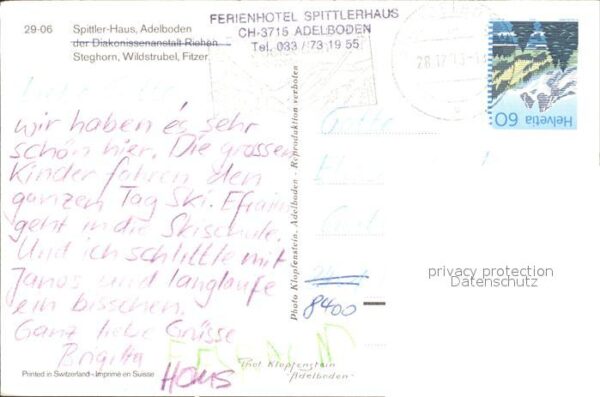 29-06 Spittler-Haus, Adelboden
der Diakonissenanstalt Riehen
Steghorn, Wildstrubel, Fitzer
FERIENHOTEL SPITTLERHAUS
CH-3715 ADELBODEN
Tel. 033 / 73 19 55
Helvetia 60
wir haben es sehr
schön hier. Die grossen
Kinder fahren den
ganzen Tag Ski. Efraim
geht in die Skischule.
Und ich schlittle mit
Janos und langlaufe
ein bisschen.
Ganz liebe Grüsse
Brigitta
Printed in Switzerland - Imprimé en Suisse
Photo Klopfenstein, Adelboden - Reproduktion verboten
8400
Phot Klopfenstein
Adelboden
privacy protection
Datenschutz